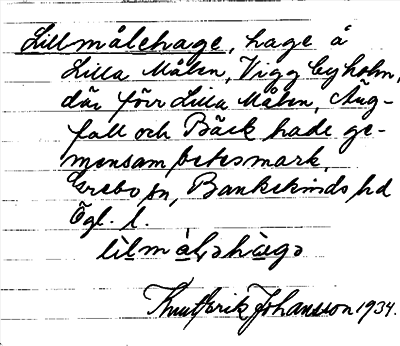 Lillmålehage, hage å
Lilla Målen, Viggbyholm,
där förr Lilla Målen, Äng-
fall och Bäck hade ge-
mensam betesmark,
Grebo sn, Bankekinds hd
Ögl. l.
lìlmàləhàgə
Knut Erik Johansson 1934.